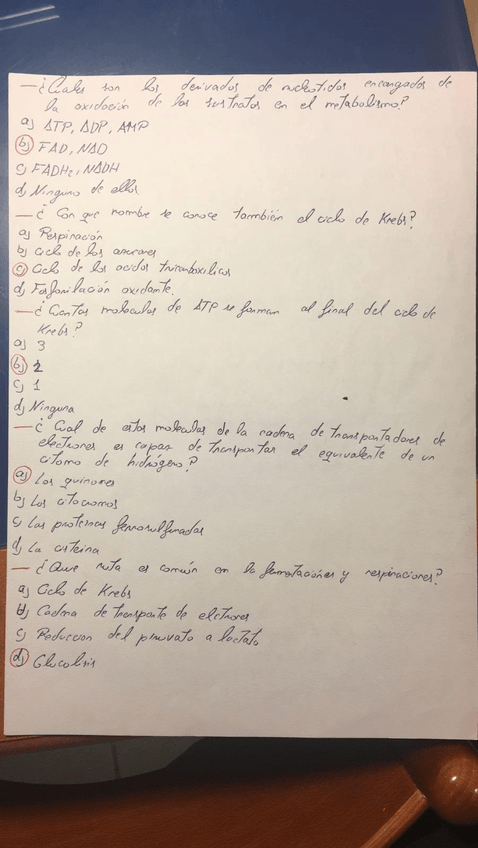 — ¿Cuales son los derivados de nucleotidos encargados de
la oxidación de los sustratos en el metabolismo?
a) ATP, ADP, AMP
b) FAD, NAD
c) FADH2, NADH
d) Ninguno de ellos
— ¿ Con que nombre se conoce también el ciclo de Krebs?
a) Respiración
b) Ciclo de los
c) Ciclo de los acidos tricarboxilicos
d) Fosforilación oxidante
— ¿ Cuantas moleculas de ATP se forman al final del ciclo de
Krebs?
a) 3
b) 2
c) 1
d) Ninguna
— ¿ Cual de estas moleculas de la cadena de transportadores de
electrones es capaz de transportar el equivalente de un
atomo de hidrógeno?
a) Las quinonas
b) Los citocromos
c) Las proteinas ferrosulfuradas
d) La cisteina
— ¿Que ruta es común en la fermentaciones y respiraciones?
a) Ciclo de Krebs
b) Cadena de transporte de electrones
c) Reduccion del piruvato a lactato
d) Glucolisis